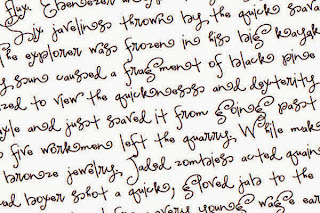 Flax. Ebenezer
Six javelins thrown by the quick sava
The explorer was frozen in his big kayak
y sun caused a fragment of black pine
zed to view the quickness and dexterity
yle and just saved it from going past
e five workmen left the quarry. While mak
bronze jewelry. Jaded zombies acted quain
ad boxer shot a quick, gloved jab to the
every young wage ear